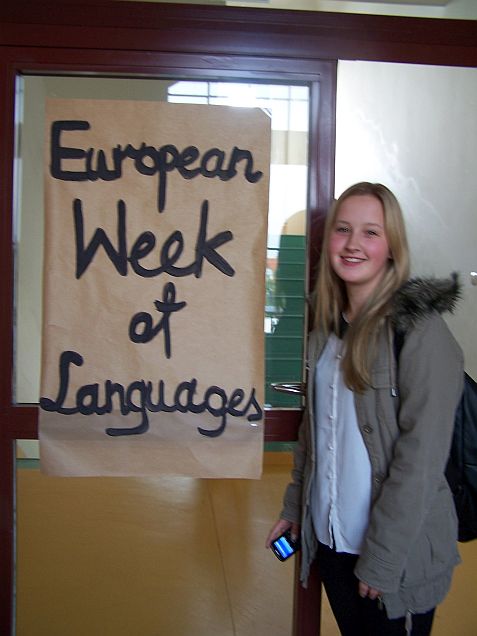 European
Week
of
Languages